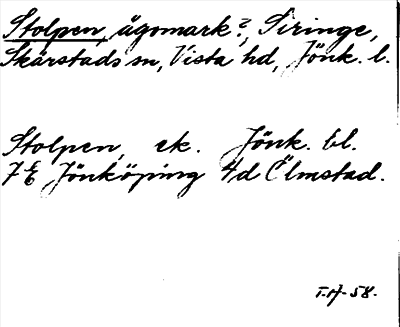 Stolpen, ägomark?, Siringe,
Skärstads sn, Vista hd, Jönk. l.
Stolpen, ek. Jönk. bl.
7E Jönköping 4d Ölmstad.